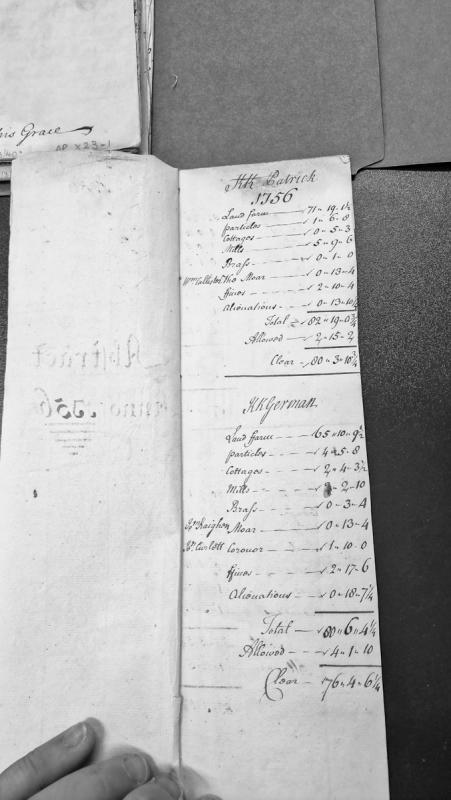 his Grace
AP X23-1
KK Patrick
1756
Land ffarm 71 " 19 - 1½
particles 1 " 6 - 8
Cottages 0 - 5 - 3
Mills 5 - 9 - 6
Brass 0 - 1 - 0
Tho Moar 0 - 13 - 4
ffines 2 - 10 - 4
Alienations 0 - 13 - 10¼
Total 82 " 19 - 0¾
Allowed 2 - 15 - 2
Clear 80 - 3 - 10¾
KK German
Land ffarm 65 " 10 - 9½
particles 4 - 5 - 8
Cottages 2 - 4 - 3½
Mills 2 - 10
Brass 0 - 3 - 4
Moar 0 - 13 - 4
Coronor 1 - 10 - 0
ffines 2 " 17 - 6
Alienations 0 - 18 - 7¼
Total 80 " 6 " 4¼
Allowed 4 " 1 - 10
Clear 76 " 4 " 6¼
Abstract
Anno 1756